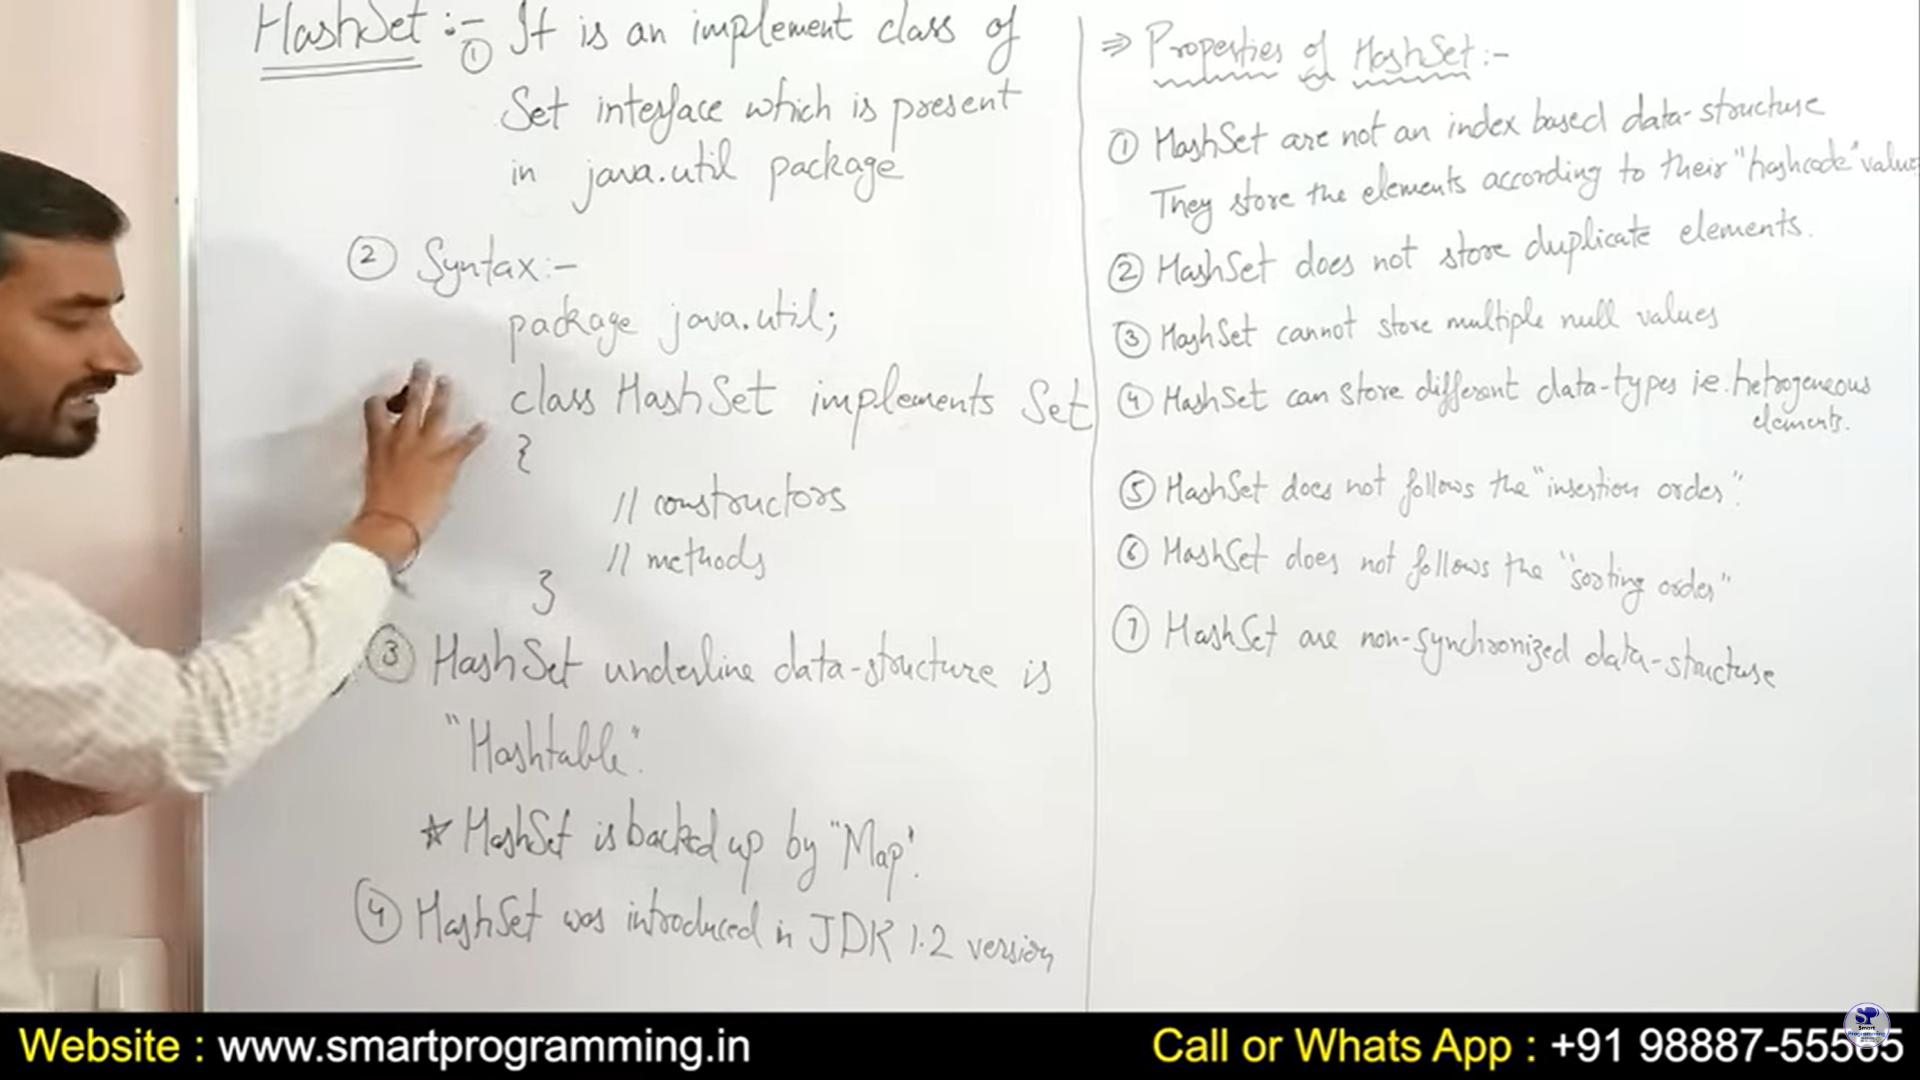 HashSet :- ① It is an implement class of
Set interface which is present
in java.util package
② Syntax:-
package java.util;
class HashSet implements Set
{
// constructors
// methods
}
③ HashSet underline data-structure is
"Hashtable".
☆ HashSet is backed up by "Map".
④ HashSet was introduced in JDK 1.2 version
⇒ Properties of HashSet:-
① HashSet are not an index based data-structure
They store the elements according to their "hashcode" values
② HashSet does not store duplicate elements.
③ HashSet cannot store multiple null values
④ HashSet can store different data-types i.e. hetrogeneous
elements.
⑤ HashSet does not follows the "insertion order".
⑥ HashSet does not follows the "sorting order"
⑦ HashSet are non-synchronized data-structure
SP
Smart
Programming
Website : www.smartprogramming.in
Call or Whats App : +91 98887-55565